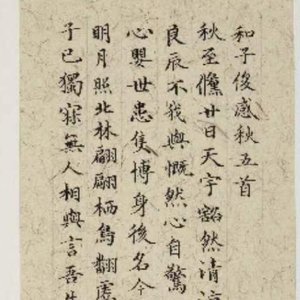 和子俊感秋五首
秋至儵廿日天宇豁然清涼
良辰不我與慨然心自驚
心嬰世患隻博身後名今
明月照北林翩翩栖鳥翻露
子已獨寐無人相與言吾生